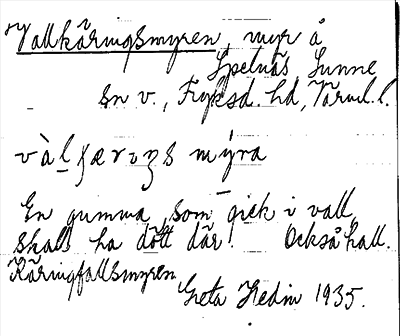 Vallkäringsmyren, myr å
Spelnäs Sunne
sn v., Fryksd. hd, Värml. l.
mýra
En gumma, som gick i vall,
skall ha dött där! Också kall.
Käringfallsmyren
Greta Hedin 1935.